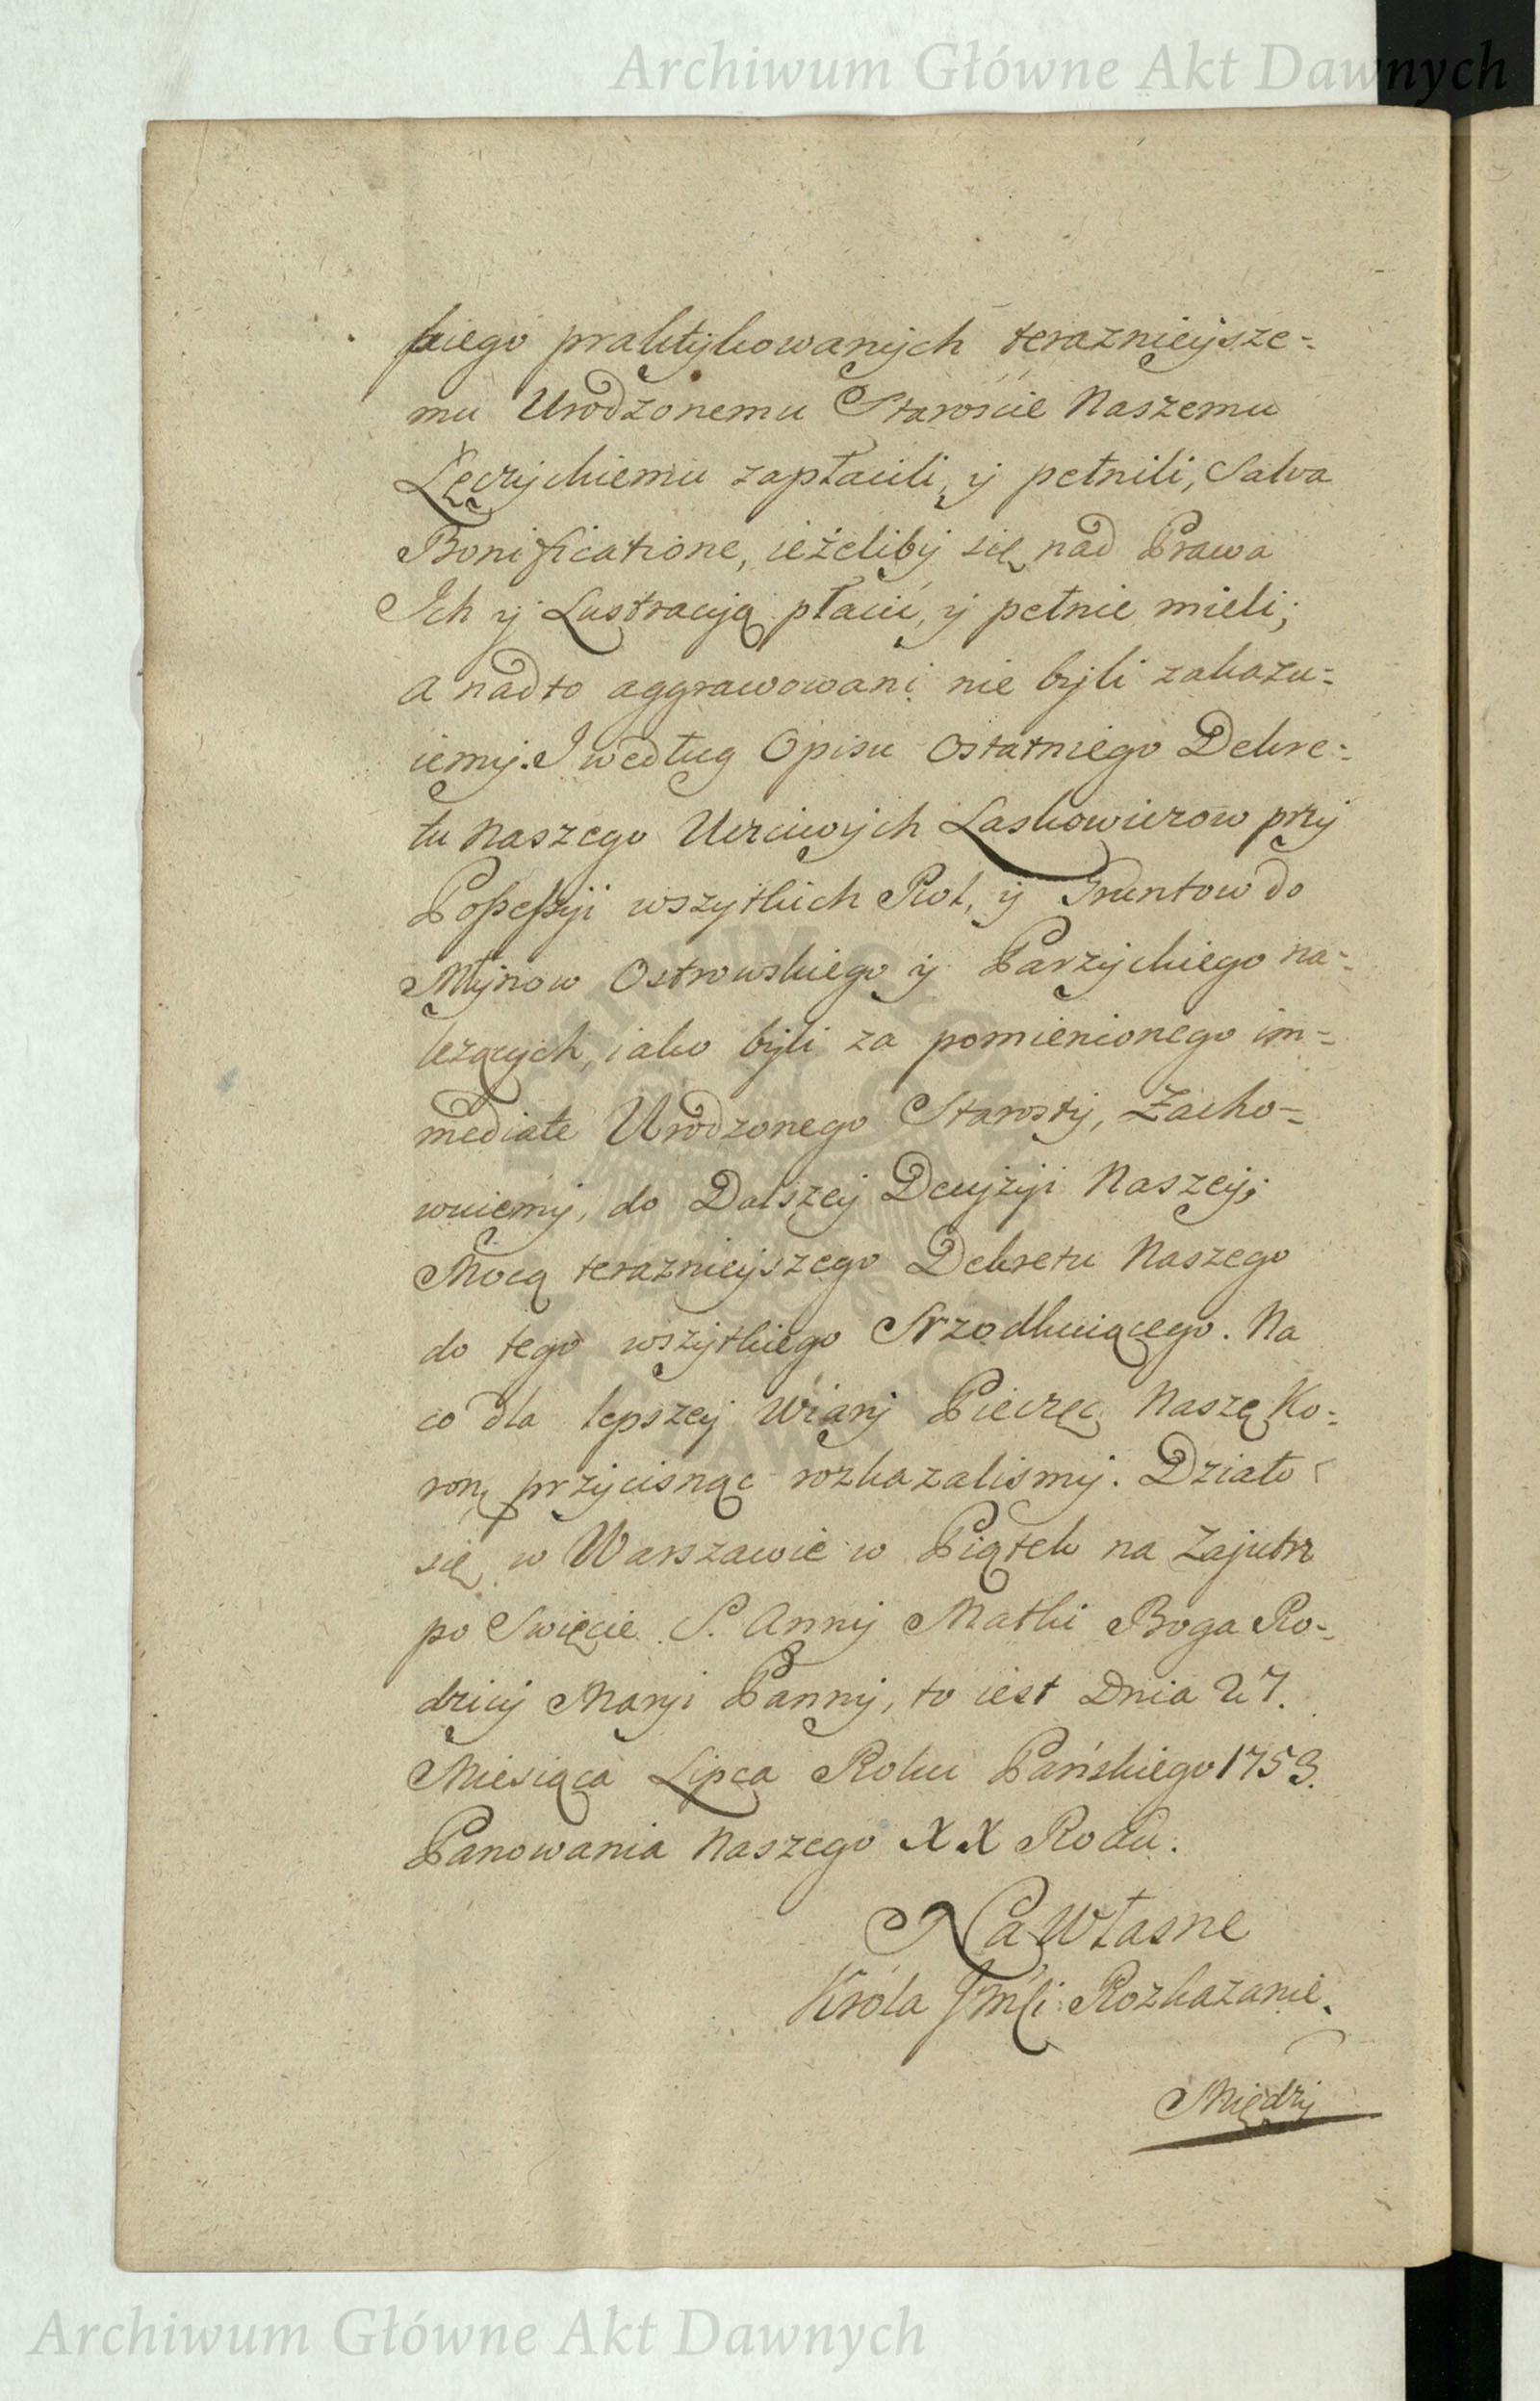 Archiwum Główne Akt Dawnych
skiego praktykowanych terazniejsze-
mu Urodzonemu Staroscie Naszemu
Łęczyckiemu zapłacili, y pełnili, Salva
Bonificatione, ieżeliby się nad Prawa
Ich y Lustracyją płacić, y pełnic mieli;
a nadto aggrawowani nie byli zakazu-
iemy. I według Opisu Ostatniego Dekre-
tu Naszego Uczciwych Laskowiczow przy
Possessyi wszytkich Rol, y Gruntow do
Młynow Ostrowskiego y Parzyckiego na-
lezących, iako byli za pomienionego im-
mediate Urodzonego Starosty, Zacho-
wuiemy, do Dalszey Decyzyi Naszey;
Mocą terazniejszego Dekretu Naszego
do tego wszytkiego Srzodkuiącego. Na
co dla lepszey Wiary Pieczęc Naszę Ko-
ronę przycisnąc rozkazalismy. Działo
się w Warszawie w Piątek na Zajutrz
po Swięcie S. Anny Matki Boga Ro-
dzicy Maryi Panny, to iest Dnia 27.
Miesiąca Lipca Roku Pańskiego 1753.
Panowania Naszego XX Roku.
Na Własne
Króla Jmci Rozkazanie.
Między
ARCHIWUM GŁÓWNE AKT DAWNYCH
Archiwum Główne Akt Dawnych